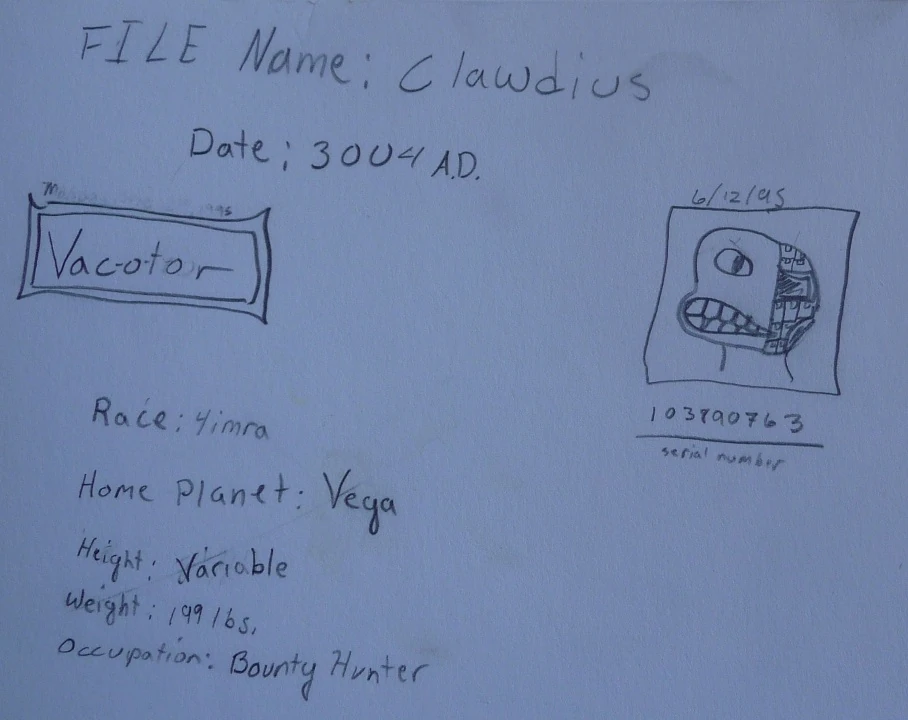 FILE Name: Clawdius
Date: 3004 A.D.
6/12/95
Vacotor
103790763
serial number
Race: Yimra
Home Planet: Vega
Height: Variable
Weight: 199 lbs.
Occupation: Bounty Hunter